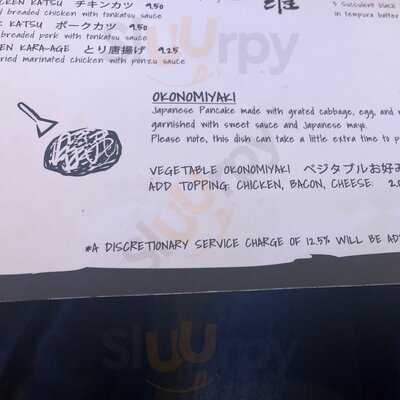 CKEN KATSU チキンカツ 9.50
d breaded chicken with tonkatsu sauce
K KATSU ポークカツ 9.50
breaded pork with tonkatsu sauce
EN KARA-AGE とり唐揚げ 9.25
ried marinated chicken with ponzu sauce
5 succulent black
in tempura batter
OKONOMIYAKI
Japanese Pancake made with grated cabbage, egg, and
garnished with sweet sauce and Japanese mayo.
Please note, this dish can take a little extra time to p
VEGETABLE OKONOMIYAKI ベジタブルお好み
ADD TOPPING: CHICKEN, BACON, CHEESE. 2.0
*A DISCRETIONARY SERVICE CHARGE OF 12.5% WILL BE AD
sluurpy
sluurpy
sluurpy